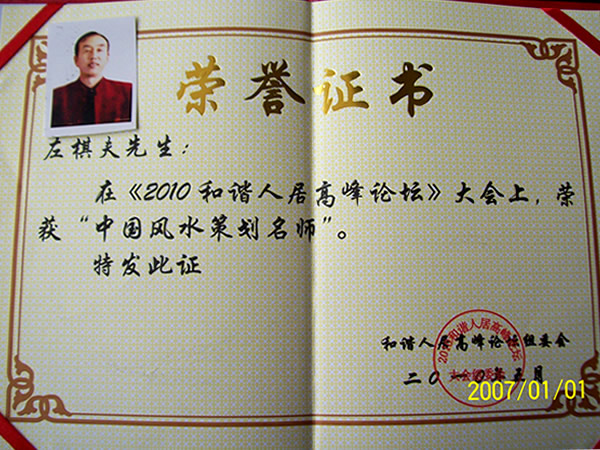 荣誉证书
左棋夫先生：
在《2010和谐人居高峰论坛》大会上，荣
获“中国风水策划名师”。
特发此证
和谐人居高峰论坛组委会
二〇一〇年五月
2010和谐人居高峰论坛
大会组委会
2007/01/01